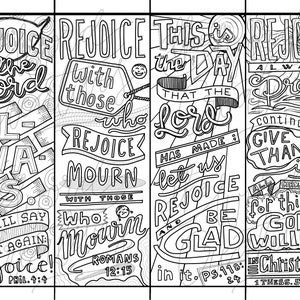 REJOICE
in the
Lord
ALWAYS.
I WILL SAY
IT AGAIN:
Rejoice!
PHIL. 4:4
REJOICE
With
those
who
REJOICE
MOURN
WITH THOSE
Who
Mourn
ROMANS
12:15
THIS is
the DAY
THAT THE
Lord
HAS MADE;
let us
REJOICE
AND BE
GLAD
in it. PS. 118:
24
REJOICE
ALWAYS
Pray
continu
GIVE
THAN
for this
God
Will
in Christ
1 THESS. 5